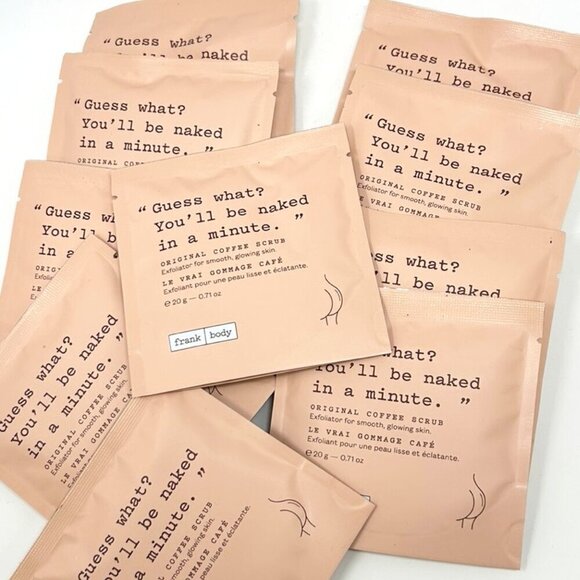 “Guess what?
You’ll be naked
“Guess what?
You’ll be naked
in a minute.
ORIGINAL COFFEE
“Guess what?
You’ll be naked
“Guess what?
You’ll be naked
in a minute. ”
ORIGINAL COFFEE SCRUB
Exfoliator for smooth, glowing skin.
LE VRAI GOMMAGE
“Guess what?
You’ll be
in a
“Guess what?
You’ll be naked
in a minute. ”
ORIGINAL COFFEE SCRUB
Exfoliator for smooth, glowing skin.
LE VRAI GOMMAGE CAFÉ
Exfoliant pour une peau lisse et éclatante.
℮ 20 g — 0.71 oz
frank body
what?
be naked
in a minute.
what?
You’ll be naked
in a minute. ”
ORIGINAL COFFEE SCRUB
Exfoliator for smooth, glowing skin.
LE VRAI GOMMAGE CAFÉ
Exfoliant pour une peau lisse et éclatante.
℮ 20 g — 0.71 oz
Guess what?
You’ll be naked
in a minute. ”
ORIGINAL COFFEE
Exfoliator for smooth, glowing
LE VRAI GOMMAGE
Guess what?
You’ll be naked
in a minute. ”
ORIGINAL COFFEE SCRUB
Exfoliator for smooth, glowing skin.
LE VRAI GOMMAGE CAFÉ
Exfoliant pour une peau lisse et éclatante.